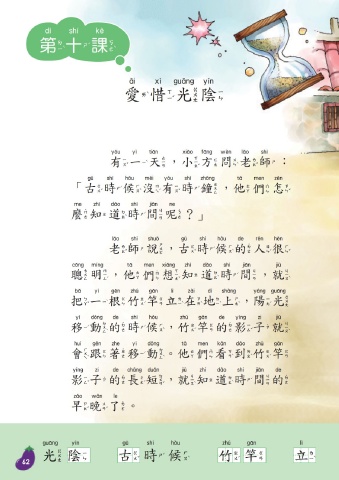 dì shí kè
第十課
ài xí guāng yīn
愛惜光陰
yǒu yì tiān xiǎo fāng wèn lǎo shī
有一天，小方問老師：
gǔ shí hòu méi yǒu shí zhōng tā men zěn
「古時候沒有時鐘，他們怎
me zhī dào shí jiān ne
麼知道時間呢？」
lǎo shī shuō gǔ shí hòu de rén hěn
老師說，古時候的人很
cōng míng tā men xiǎng zhī dào shí jiān jiù
聰明，他們想知道時間，就
bǎ yì gēn zhú gān lì zài dì shàng yáng guāng
把一根竹竿立在地上，陽光
yí dòng de shí hòu zhú gān de yǐng zi jiù
移動的時候，竹竿的影子就
huì gēn zhe yí dòng tā men kàn dào zhú gān
會跟著移動。他們看到竹竿
yǐng zi de cháng duǎn jiù zhī dào shí jiān de
影子的長短，就知道時間的
zǎo wǎn le
早晚了。
guāng yīn gǔ shí hòu zhú gān lì
光陰 古時候 竹竿 立
62